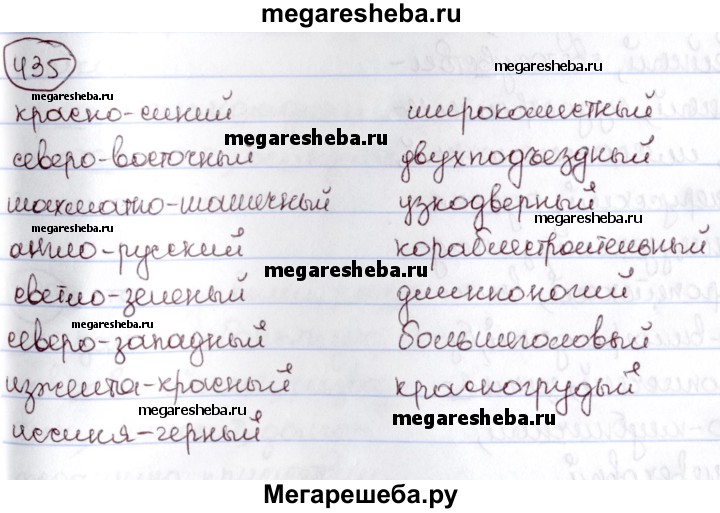 megaresheba.ru
435
megaresheba.ru
megaresheba.ru
красно-синий
широкоместный
megaresheba.ru
северо-восточный
двухподъездный
шахматно-шашечный
узкодверный
megaresheba.ru
англо-русский
кораблестроительный
megaresheba.ru
светло-зеленый
длинноногий
megaresheba.ru
северо-западный
большеголовый
изжелта-красный
красногрудый
megaresheba.ru
megaresheba.ru
иссиня-черный
Мегарешеба.ру